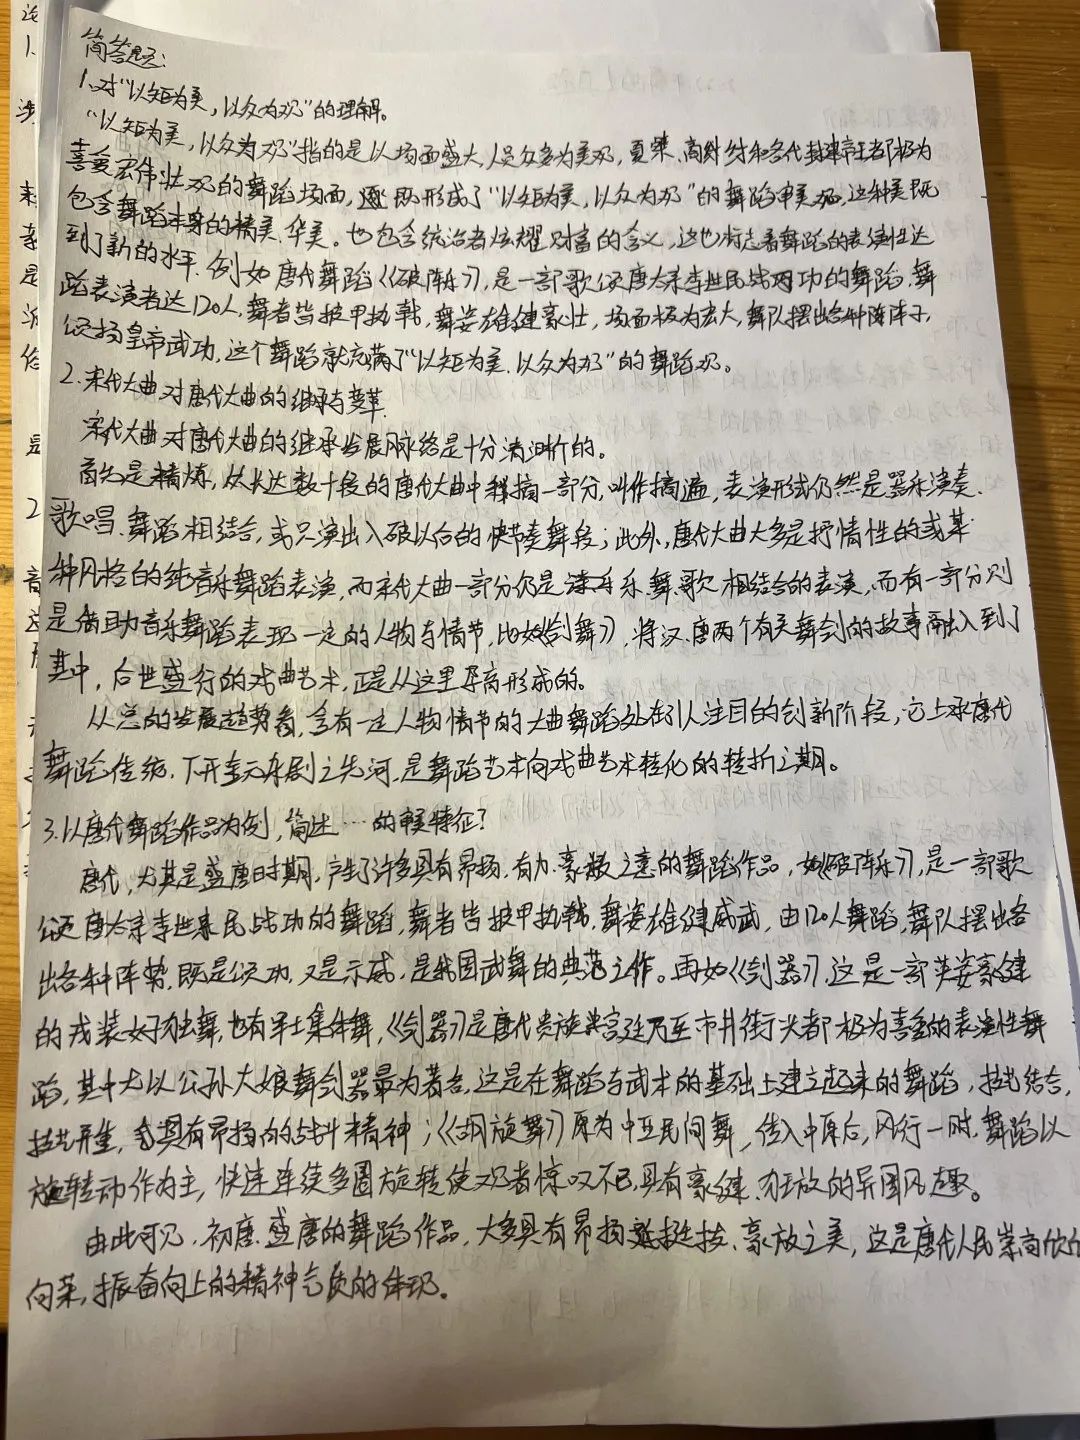 简答题:
1、对“以矩为美,以众为观”的理解。
“以矩为美,以众为观”指的是以场面盛大,人员众多为美观,夏桀、商纣和各代封建帝王都极为
喜爱宏伟壮观的舞蹈场面,既形成了“以矩为美,以众为观”的舞蹈审美观,这种美既
包含舞蹈本身的精美、华美。也包含统治者炫耀财富的含义,这也标志着舞蹈的表演性达
到了新的水平。例如唐代舞蹈《破阵乐》,是一部歌颂唐太宗李世民战功的舞蹈,舞
蹈表演者达120人,舞者皆披甲执戟,舞姿雄健豪壮,场面极为宏大,舞队摆出各种阵子,
颂扬皇帝武功,这个舞蹈就充满了“以矩为美、以众为观”的舞蹈观。
2.宋代大曲对唐代大曲的继承与变革
宋代大曲对唐代大曲的继承发展脉络是十分清晰的。
首先是精炼,从长达数十段的唐代大曲中摘一部分,叫作摘遍,表演形式仍然是器乐演奏、
歌唱、舞蹈相结合,或只演出入破以后的快节奏舞段;此外,唐代大曲大多是抒情性的或某
种风格的纯音乐舞蹈表演,而宋代大曲一部分仍是乐、舞、歌相结合的表演,而有一部分则
是借助音乐舞蹈表现一定的人物与情节,比如《剑舞》,将汉、唐两个有关舞剑的故事融入到了
其中,后世盛行的戏曲艺术,正是从这里孕育形成的。
从总的发展趋势看,含有一定人物情节的大曲舞蹈处在引人注目的创新阶段,它上承唐代
舞蹈传统,下开宋元杂剧之先河,是舞蹈艺术向戏曲艺术转化的转折之期。
3.以唐代舞蹈作品为例,简述……的审美特征?
唐代,尤其是盛唐时期,产生了许多具有昂扬、有力、豪放之意的舞蹈作品,如《破阵乐》,是一部歌
颂唐太宗李世民战功的舞蹈,舞者皆披甲执戟,舞姿雄健威武,由120人舞蹈,舞队摆出各
出各种阵势,既是颂功,又是示威,是我国武舞的典范之作。再如《剑器》,这是一部英姿豪健
的戎装女子独舞,也有军士集体舞,《剑器》是唐代贵族宫廷乃至市井街头都极为喜爱的表演性舞
蹈,其中尤以公孙大娘舞剑器最为著名,这是在舞蹈与武术的基础上建立起来的舞蹈,技艺结合,
技艺并重,具有昂扬的战斗精神;《胡旋舞》原为中亚民间舞,传入中原后,风行一时,舞蹈以
旋转动作为主,快速连续多圈旋转使观者惊叹不已,具有豪健、狂放的异国风趣。
由此可见,初唐、盛唐的舞蹈作品,大多具有昂扬挺拔、豪放之美,这是唐代人民崇高欣欣
向荣,振奋向上的精神气质的体现。